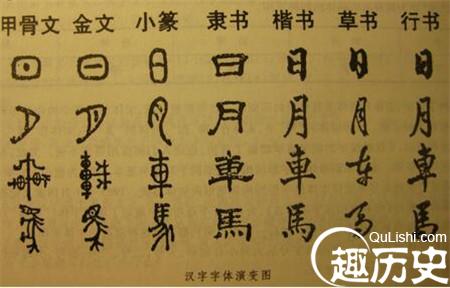 甲骨文 金文 小篆 隶书 楷书 草书 行书
日 日 日 日 日 日 日
月 月 月 月 月 月 月
車 車 車 車 車 车 車
馬 馬 馬 馬 馬 马 馬
汉字字体演变图
QuLishi.com
趣历史